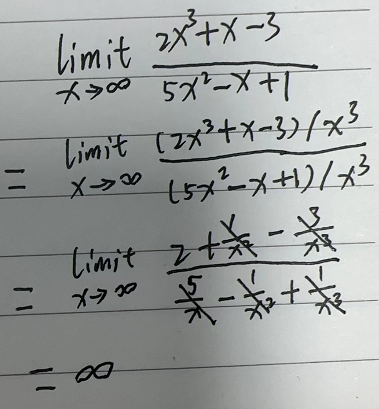 limit x→∞ (2x³+x-3)/(5x²-x+1)
= limit x→∞ ((2x³+x-3)/x³)/((5x²-x+1)/x³)
= limit x→∞ (2+1/x²-3/x³)/(5/x-1/x²+1/x³)
= ∞